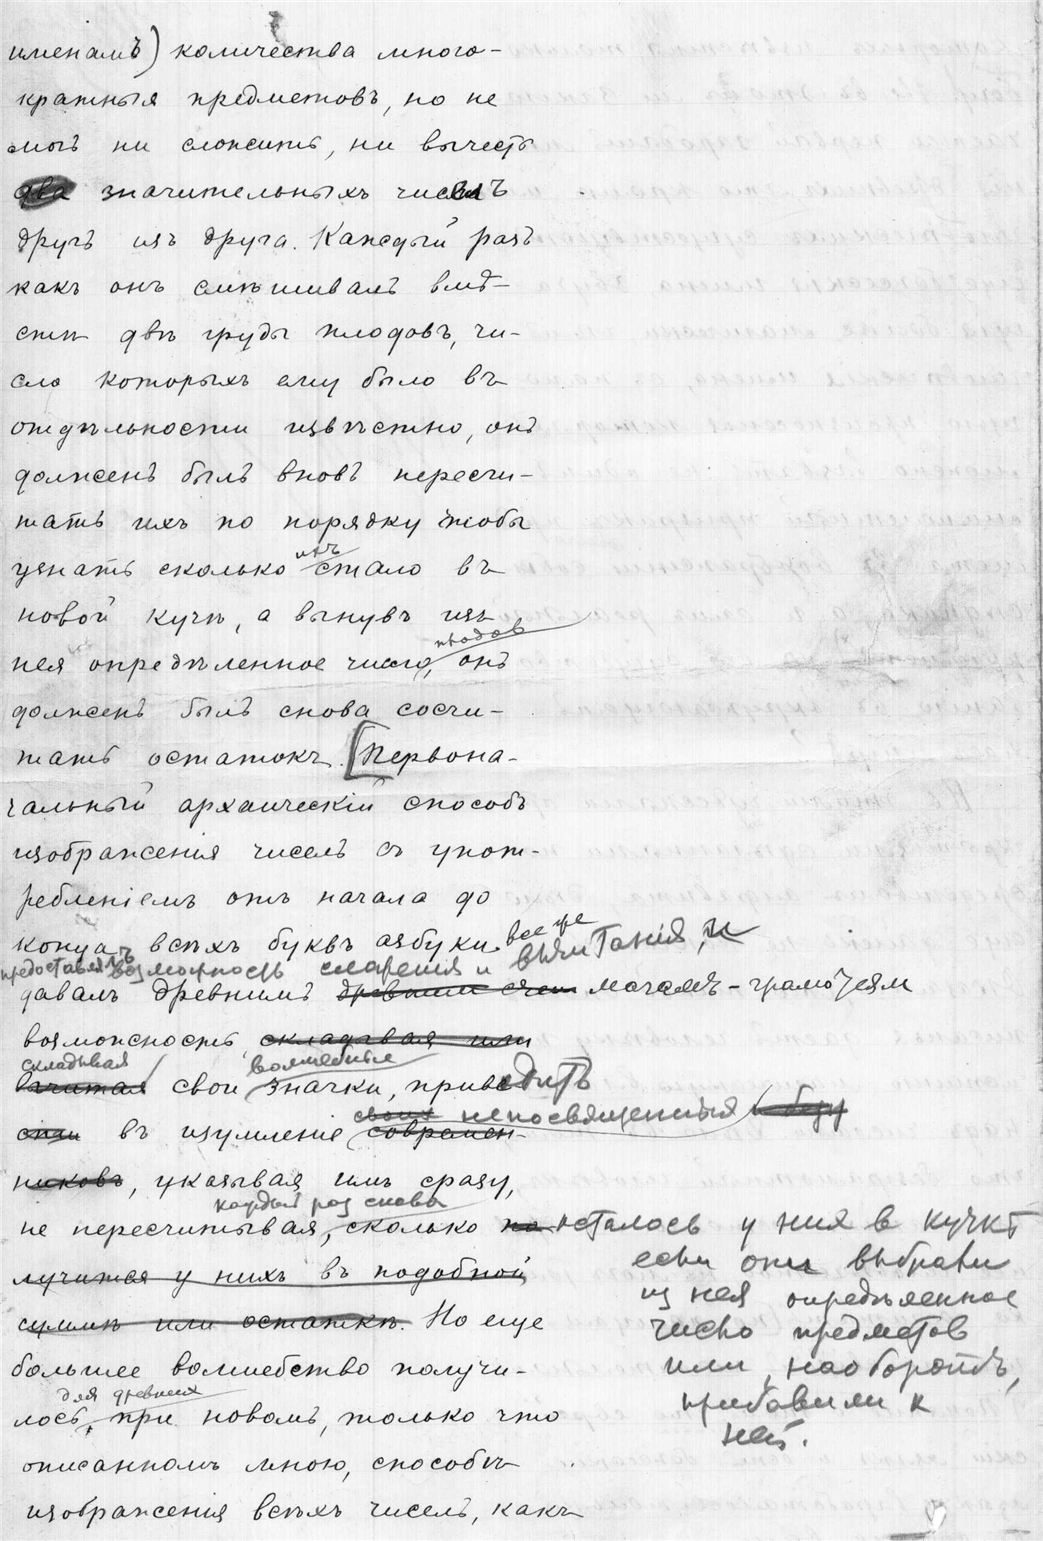 именамъ) количества много-
кратныя предметовъ, но не
могъ ни сложить, ни вычесть
два значительныхъ числъ
другъ изъ друга. Каждый разъ
какъ онъ смѣшивалъ вмѣ-
стѣ двѣ груды плодовъ, чи-
сло которыхъ ему было въ
отдѣльности извѣстно, онъ
долженъ былъ вновь пересчи-
тать ихъ по порядку чтобы
ихъ
узнать сколько стало въ
новой кучѣ, а вынувъ изъ
плодов
нея опредѣленное число, онъ
долженъ былъ снова сосчи-
тать остатокъ. [Первона-
чальный архаическій способъ
изображенія чиселъ съ упот-
ребленіемъ отъ начала до
конца всѣхъ буквъ азбуки все же
предоставлялъ возможность сложения и вычитанія, и
давалъ древнимъ древним магамъ-грамотеям
возможность, складывая или
складывая волшебные
вычитая свои значки, приводить
своих непосвященныя
въ изумленіе современ-
никовъ, указывая имъ сразу,
каждый раз снова
не пересчитывая, сколько осталось у нихъ в кучкѣ
если они выбрали
из нея опредѣленное
число предметов
или, наоборотъ,
прибавили к
ней.
лучится у нихъ въ подобной
суммѣ или остаткѣ. Но еще
большее волшебство получи-
для древних
лось, при новомъ, только что
описанномъ мною, способѣ
изображенія всѣхъ чиселъ, какъ